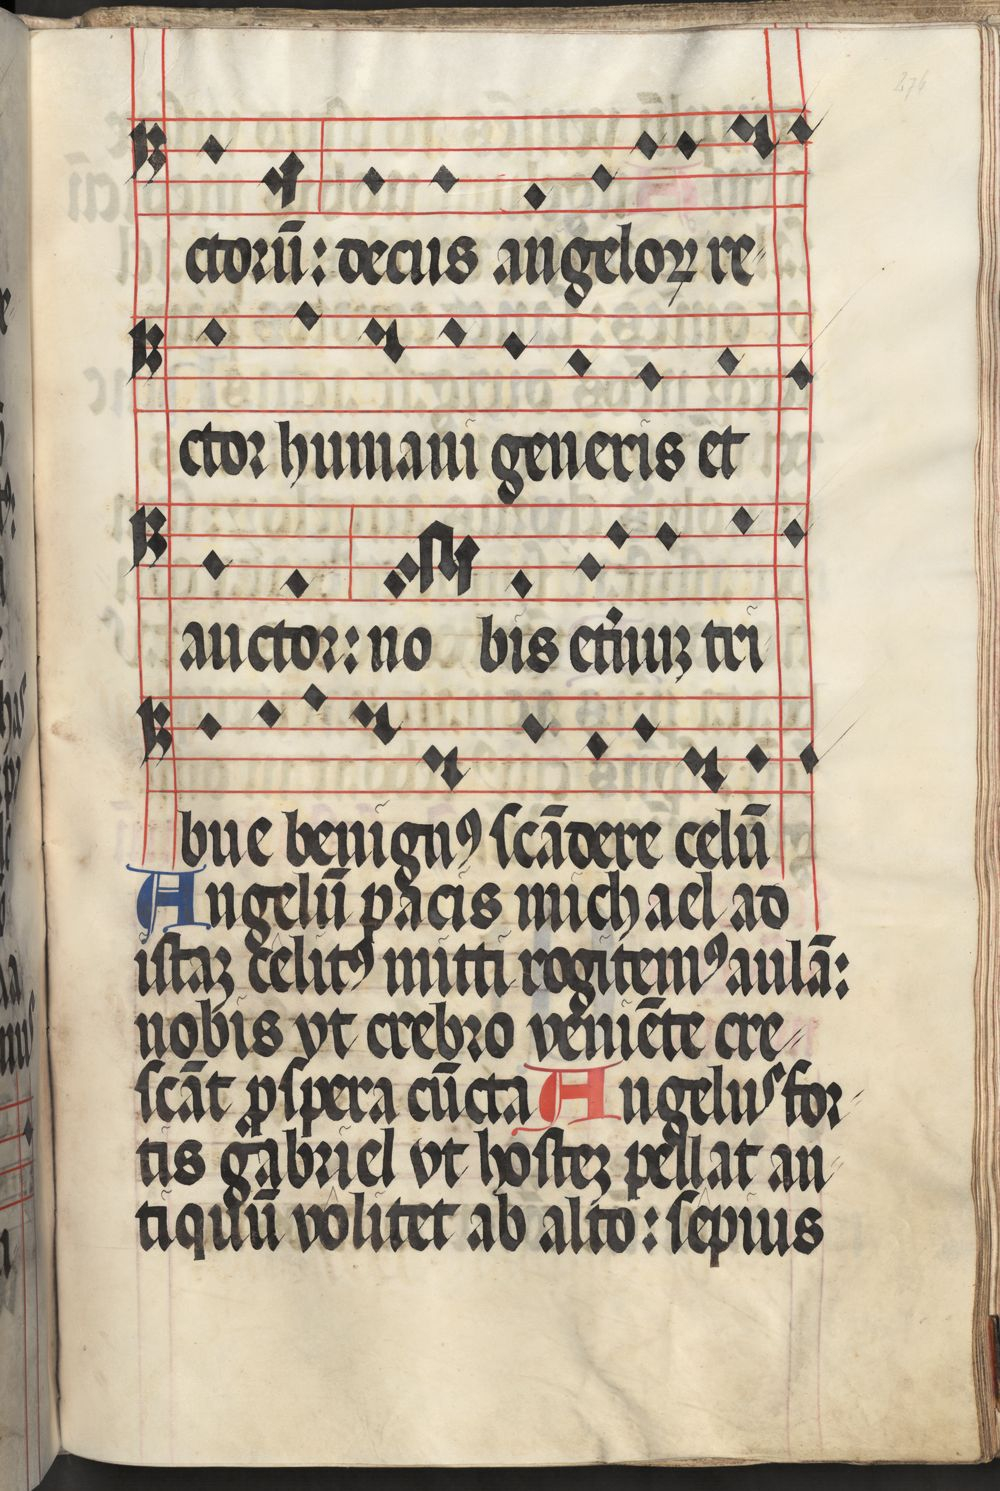 ctorū: decus angeloꝝ re⸗
ctor humani generis et
auctor: no bis etˀnuꝫ tri
bue benignꝰ ſcādere celū
Angelū pacis michael ad
iſtaꝫ celitꝰ mitti rogitemꝰ aulā:
nobis vt crebro veniēte cre⸗
ſcāt ꝓſpera cūcta Angelus for⸗
tis gabriel vt hoſteꝫ pellat an⸗
tiquū volitet ab alto: ſepius